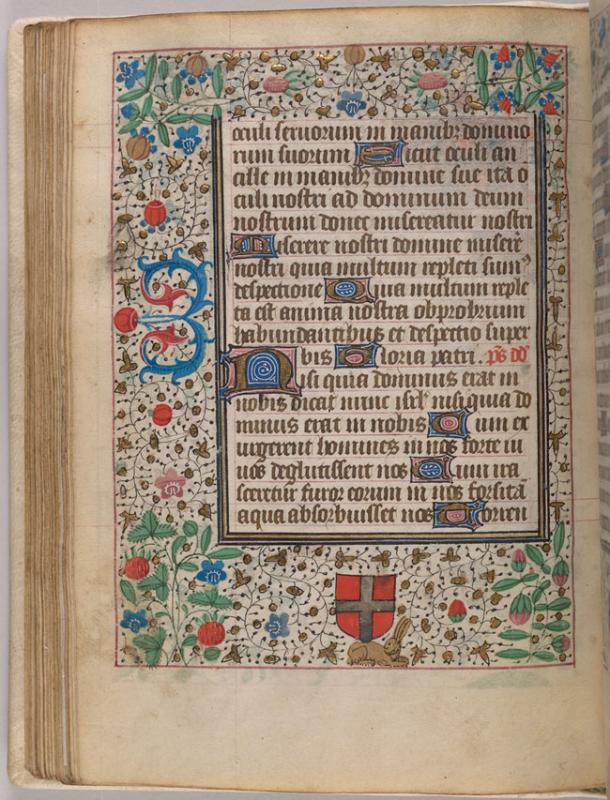 oculi seruorum in manibꝫ domino
rum suorum Sicut oculi an
cille in manibꝫ domine sue ita o
culi nostri ad dominum deum
nostrum donec misereatur nostri
Miserere nostri domine misere
nostri quia multum repleti sumꝰ
despectione Quia multum reple
ta est anima nostra obprobrium
habundantibus et despectio super
bis Gloria patri. p̄s dd̄
Nisi quia dominus erat in
nobis dicat nunc isrl̄ nisi quia do
minus erat in nobis Cum ex
urgerent homines in nos forte vi
uos deglutissent nos Cum ira
sceretur furor eorum in nos forsitā
aqua absorbuisset nos Torren